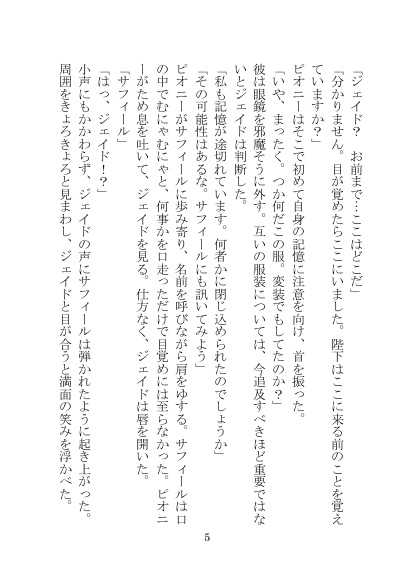 『ジェイド?　お前まで…ここはどこだ」
「分かりません。目が覚めたらここにいました。陛下はここに来る前のことを覚え
ていますか？」
ピオニーはそこで初めて自身の記憶に注意を向け、首を振った。
「いや、まったく。つか何だこの服。変装でもしてたのか？」
彼は眼鏡を邪魔そうに外す。互いの服装については、今追及すべきほど重要ではな
いとジェイドは判断した。
「私も記憶が途切れています。何者かに閉じ込められたのでしょうか」
「その可能性はあるな。サフィールにも訊いてみよう」
ピオニーがサフィールに歩み寄り、名前を呼びながら肩をゆする。サフィールは口
の中でむにゃむにゃと、何事かを口走っただけで目覚めには至らなかった。ピオニ
ーがため息を吐いて、ジェイドを見る。仕方なく、ジェイドは唇を開いた。
「サフィール」
「はっ、ジェイド！？」
小声にもかかわらず、ジェイドの声にサフィールは弾かれたように起き上がった。
周囲をきょろきょろと見まわし、ジェイドと目が合うと満面の笑みを浮かべた。
5